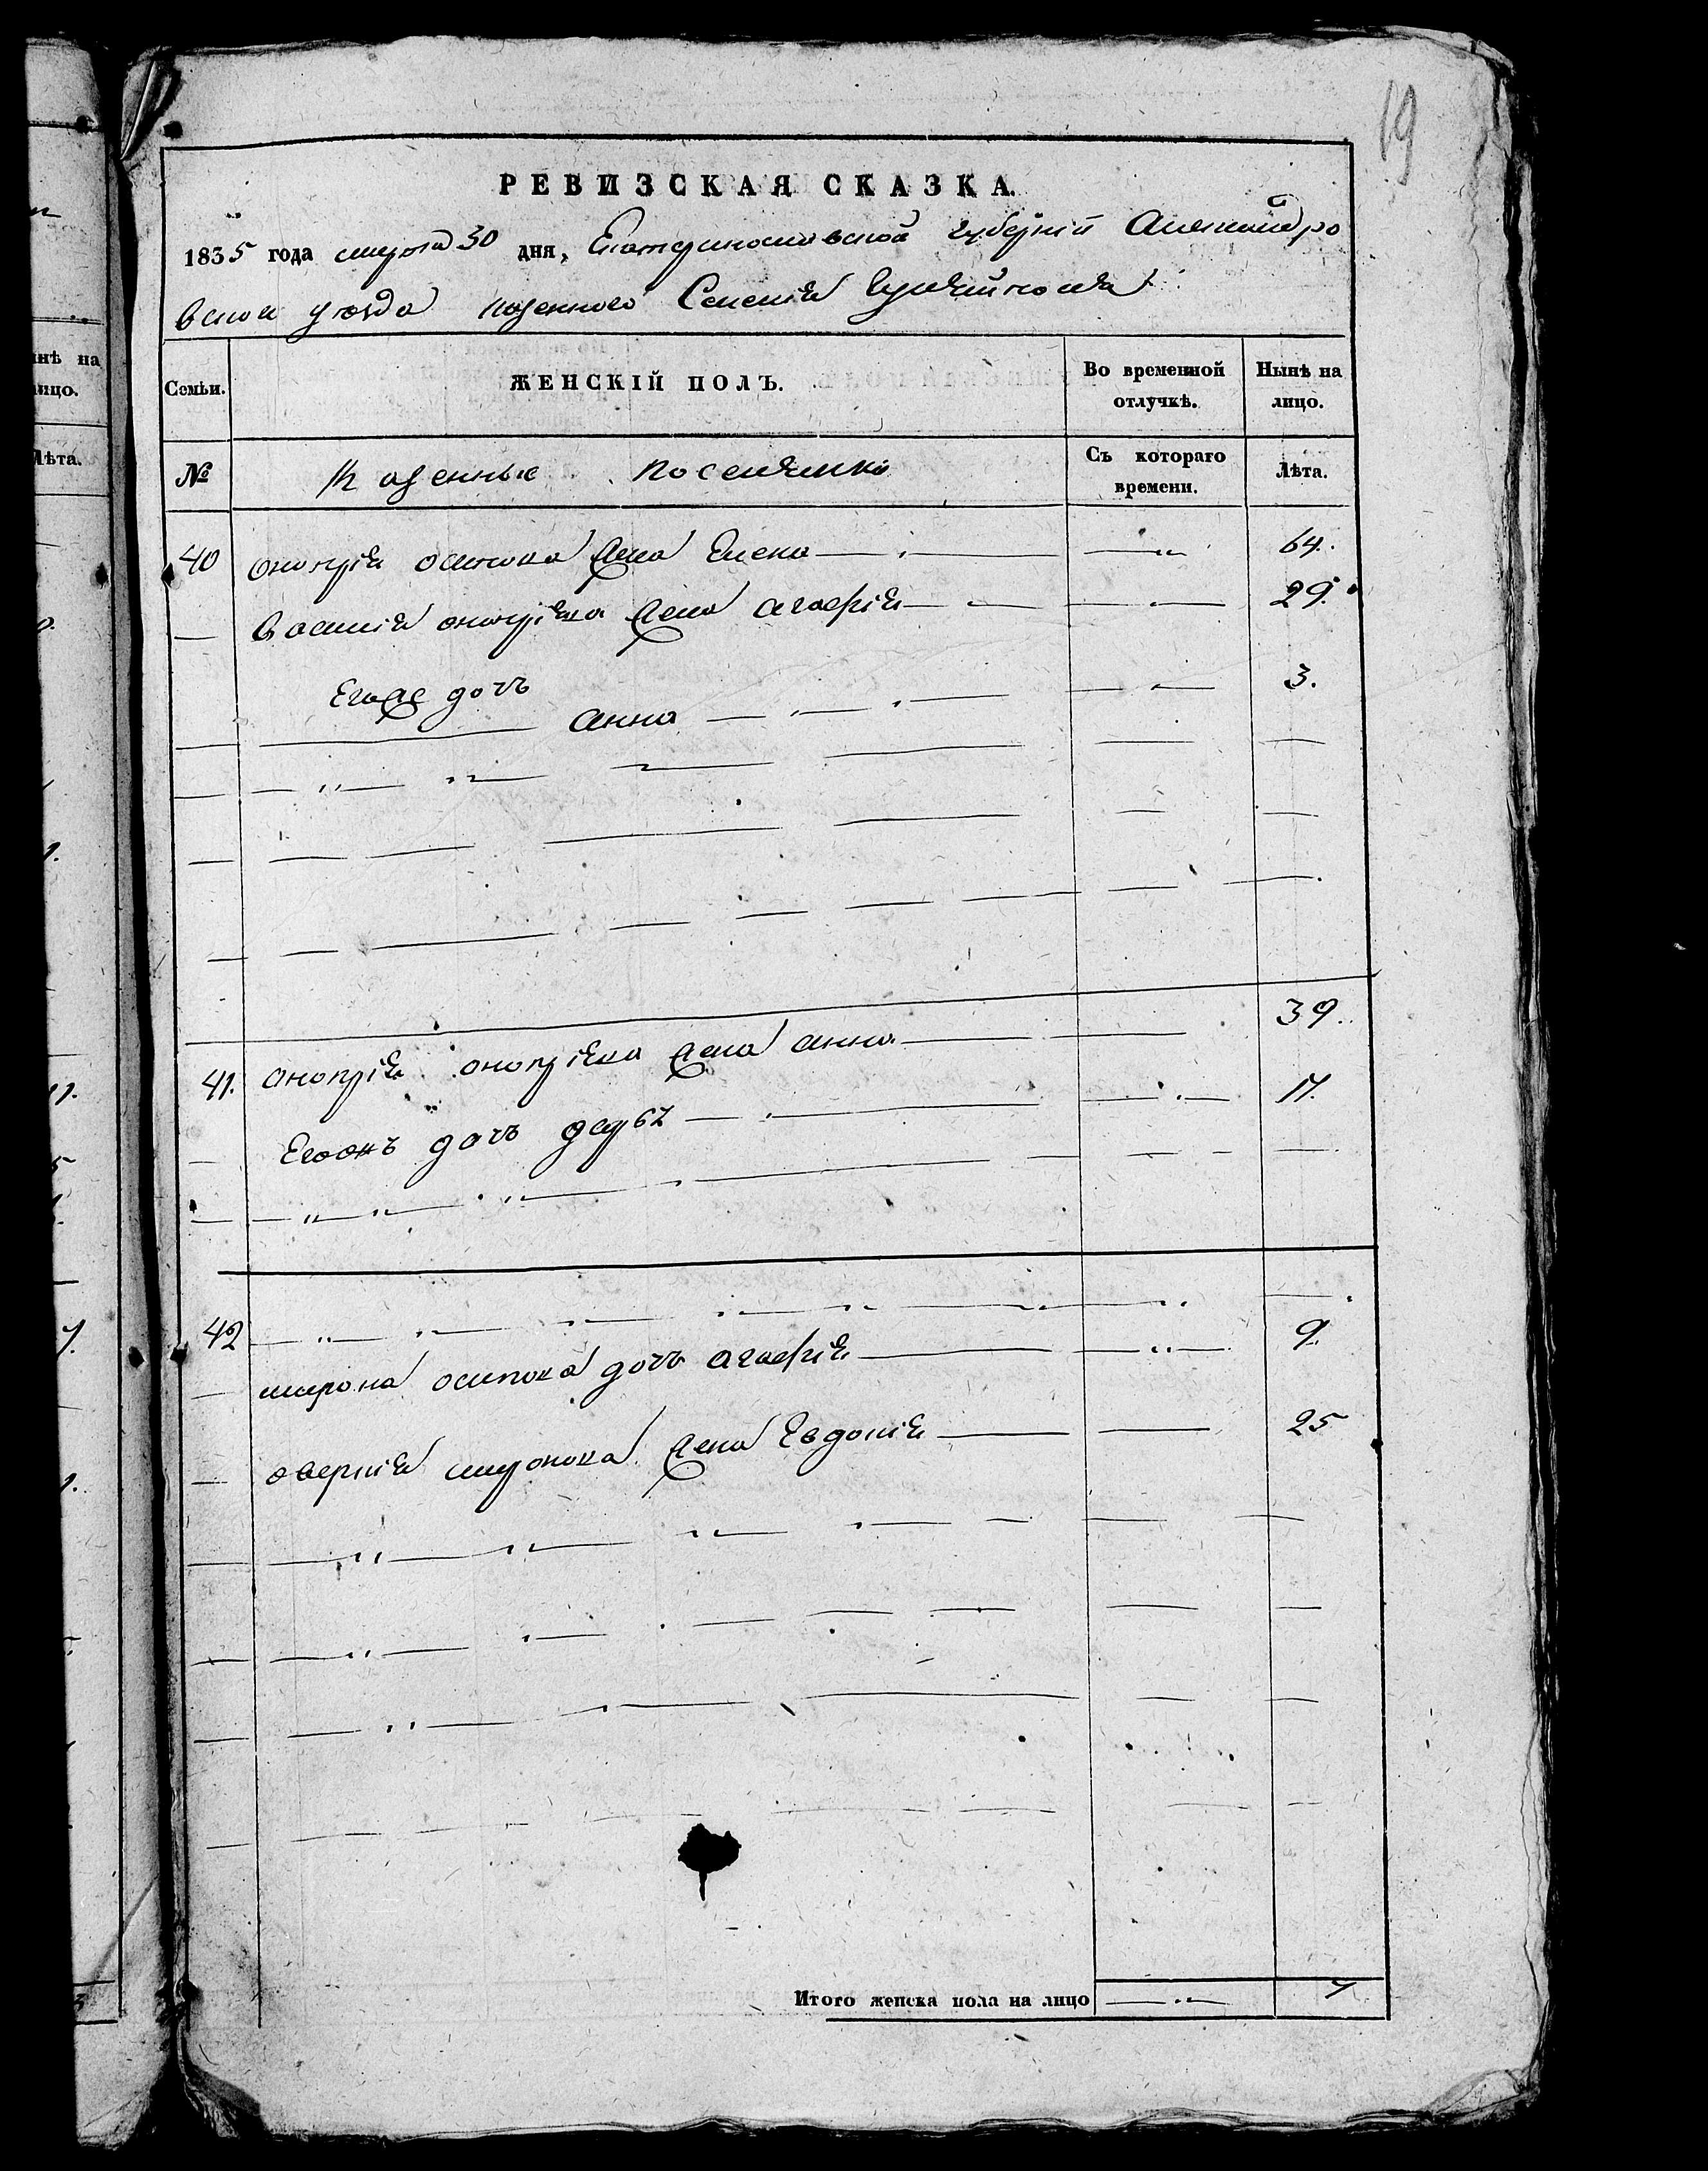 19
РЕВИЗСКАЯ СКАЗКА.
1835 года марта 30 дня, Екатеринославской губернии Александро
вском уѣзда казенного Селения
Семьи. ЖЕНСКІЙ ПОЛЪ. Во временной отлучкѣ. Нынѣ на лицо.
№ Казенные поселянки Съ котораго времени. Лѣта.
40 Оноприя осипова жена Елена 64.
Василия оноприева жена агафия 29.
Егоже дочь
анна 3.
41. Оноприя оноприева жена анна 39.
дочь 17.
42
мирона осипова дочь агафия 9.
аверкия миронова жена Евдокия 25
Итого женска пола на лицо 7
нѣ на
лицо.
Лѣта.